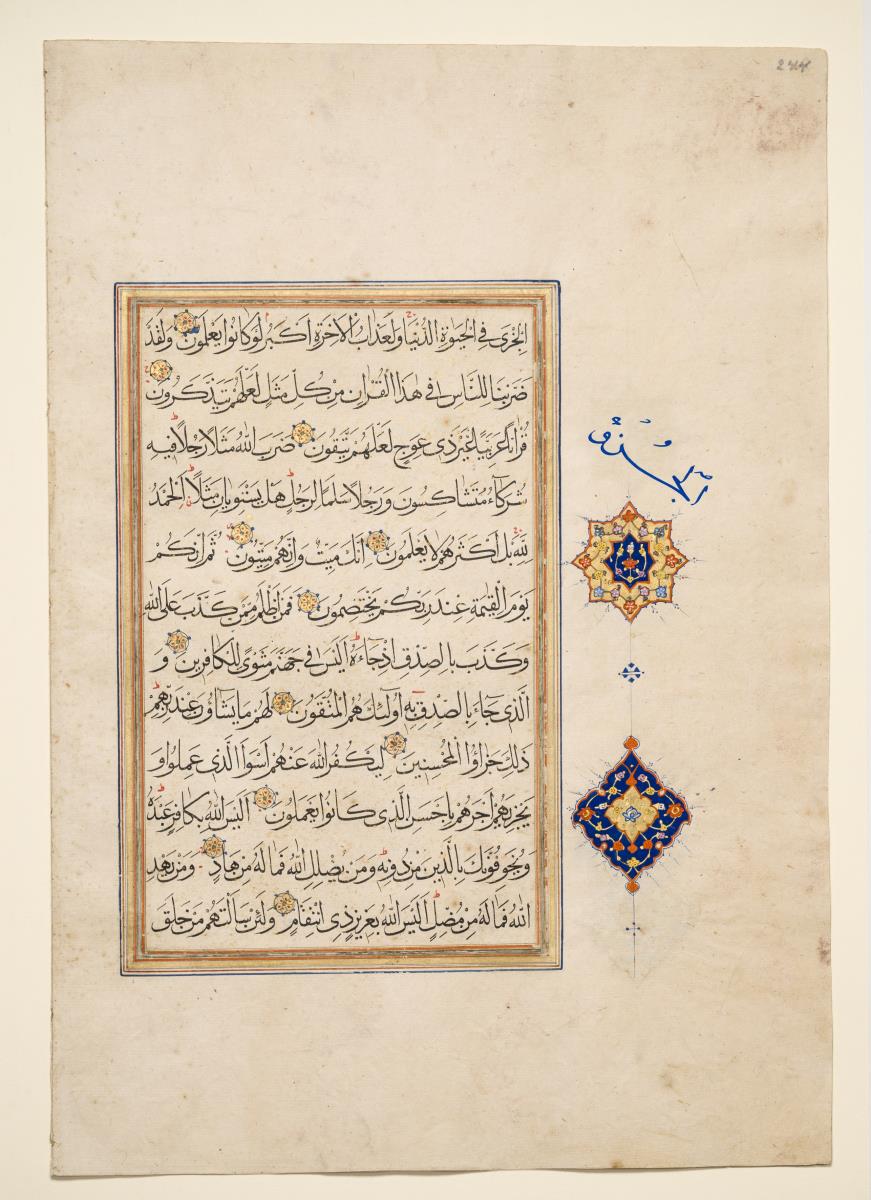 الْخِزْيَ فِي الْحَيٰوةِ الدُّنْيَا وَلَعَذَابُ الْاٰخِرَةِ اَكْبَرُ لَوْ كَانُوا يَعْلَمُونَ وَلَقَدْ
ضَرَبْنَا لِلنَّاسِ فِي هٰذَا الْقُرْاٰنِ مِنْ كُلِّ مَثَلٍ لَعَلَّهُمْ يَتَذَكَّرُونَ
قُرْاٰنًا عَرَبِيًّا غَيْرَ ذِي عِوَجٍ لَعَلَّهُمْ يَتَّقُونَ ضَرَبَ اللّٰهُ مَثَلًا رَجُلًا فِيهِ
شُرَكَاۤءُ مُتَشَاكِسُونَ وَرَجُلًا سَلَمًا لِرَجُلٍ هَلْ يَسْتَوِيَانِ مَثَلًا اَلْحَمْدُ
لِلّٰهِ بَلْ اَكْثَرُهُمْ لَا يَعْلَمُونَ اِنَّكَ مَيِّتٌ وَاِنَّهُمْ مَيِّتُونَ ثُمَّ اِنَّكُمْ
يَوْمَ الْقِيٰمَةِ عِنْدَ رَبِّكُمْ تَخْتَصِمُونَ فَمَنْ اَظْلَمُ مِمَّنْ كَذَبَ عَلَى اللّٰهِ
وَكَذَّبَ بِالصِّدْقِ اِذْ جَاۤءَهُ اَلَيْسَ فِي جَهَنَّمَ مَثْوًى لِلْكَافِرِينَ وَ
الَّذِي جَاۤءَ بِالصِّدْقِ بِهِ اُولٰۤئِكَ هُمُ الْمُتَّقُونَ لَهُمْ مَا يَشَاۤؤُنَ عِنْدَ رَبِّهِمْ
ذٰلِكَ جَزَاۤؤُا الْمُحْسِنِينَ لِيُكَفِّرَ اللّٰهُ عَنْهُمْ اَسْوَاَ الَّذِي عَمِلُوا وَ
يَجْزِيَهُمْ اَجْرَهُمْ بِاَحْسَنِ الَّذِي كَانُوا يَعْمَلُونَ اَلَيْسَ اللّٰهُ بِكَافٍ عَبْدَهُ
وَيُخَوِّفُونَكَ بِالَّذِينَ مِنْ دُونِهِ وَمَنْ يُضْلِلِ اللّٰهُ فَمَا لَهُ مِنْ هَادٍ وَمَنْ يَهْدِ
اللّٰهُ فَمَا لَهُ مِنْ مُضِلٍّ اَلَيْسَ اللّٰهُ بِعَزِيزٍ ذِي انْتِقَامٍ وَلَئِنْ سَاَلْتَهُمْ مَنْ خَلَقَ